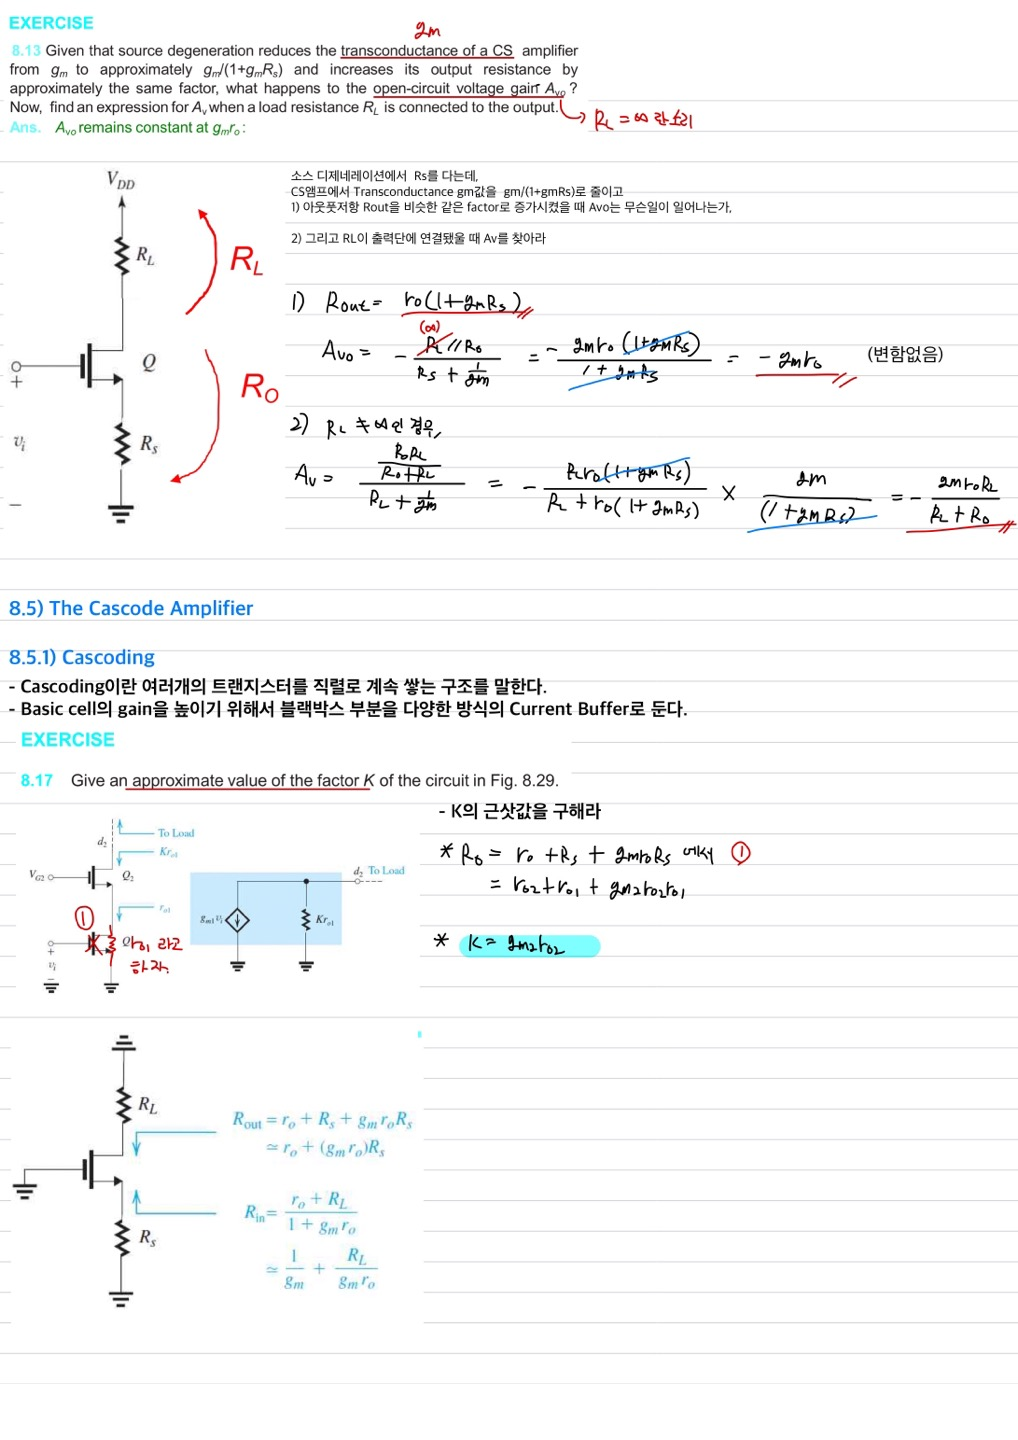 EXERCISE
gm
8.13 Given that source degeneration reduces the transconductance of a CS amplifier
from gm to approximately gm/(1+gmRs) and increases its output resistance by
approximately the same factor, what happens to the open-circuit voltage gain Avo ?
Now, find an expression for Av when a load resistance RL is connected to the output.
→ RL = ∞ 란 소리
Ans. Avo remains constant at gmro :
소스 디제네레이션에서 Rs를 다는데,
CS앰프에서 Transconductance gm값을 gm/(1+gmRs)로 줄이고
1) 아웃풋저항 Rout을 비슷한 같은 factor로 증가시켰을 때 Avo는 무슨일이 일어나는가,
2) 그리고 RL이 출력단에 연결됐울 때 Av를 찾아라
VDD
RL
RL
Q
RO
Rs
vi
+
−
1) Rout = ro(1+gmRs)
(∞)
Avo = - RL//Ro / Rs + 1/gm = - gmro(1+gmRs) / 1+gmRs = - gmro (변함없음)
2) RL ≠ ∞인 경우,
Av = RoRL/Ro+RL / RL + 1/gm = - RLro(1+gmRs) / RL + ro(1+gmRs) × gm / (1+gmRs) = - gmroRL / RL + Ro
8.5) The Cascode Amplifier
8.5.1) Cascoding
- Cascoding이란 여러개의 트랜지스터를 직렬로 계속 쌓는 구조를 말한다.
- Basic cell의 gain을 높이기 위해서 블랙박스 부분을 다양한 방식의 Current Buffer로 둔다.
EXERCISE
8.17 Give an approximate value of the factor K of the circuit in Fig. 8.29.
- K의 근삿값을 구해라
To Load
d2
Kro1
VG2
Q2
ro1
①
Q1
ro1 라고
하자.
+
vi
−
d2 To Load
gm1vi
Kro1
* Ro = ro + Rs + gmroRs 에서 ①
= ro2 + ro1 + gm2ro2ro1
* K = gm2ro2
RL
Rout = ro + Rs + gm roRs
≃ ro + (gm ro)Rs
Rin = ro + RL / 1 + gm ro
Rs
≃ 1/gm + RL/gm ro